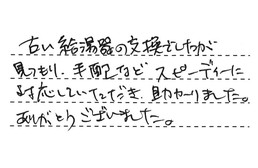 古い給湯器の交換でしたが
見つもり、手配などスピーディーに
対応していただき、助かりました。
ありがとうございました。